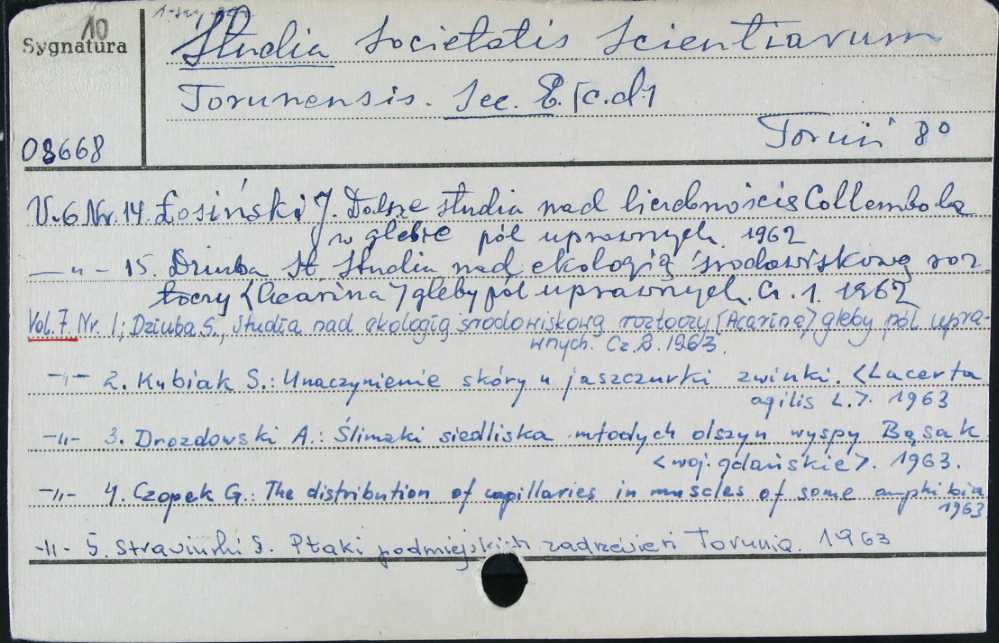 10
Sygnatura
Studia Societatis Scientiarum
Torunensis. Sec. E. [c.d.]
08668
Toruń 8°
V. 6 Nr. 14. Łosiński J. Dalsze studia nad liczebnością Collembola
w glebie pól uprawnych. 1962
— " — 15. Dziuba St. Studia nad ekologią środowiskową roz-
toczy <Acarina> gleby pól uprawnych. Cz. 1. 1962
Vol. 7. Nr. 1; Dziuba S., Studia nad ekologią środowiskową roztoczy (Acarina) gleby pól upra-
wnych. Cz. 2. 1963.
—"— 2. Kubiak S.: Unaczynienie skóry u jaszczurki zwinki. <Lacerta
agilis L.>. 1963
—"— 3. Drozdowski A.: Ślimaki siedliska młodych olszyn wyspy Bąsak
<woj. gdańskie>. 1963.
—"— 4. Czopek G.: The distribution of capillaries in muscles of some amphibia
1963
—"— 5. Strawiński S. Ptaki podmiejskich zadrzewień Torunia. 1963